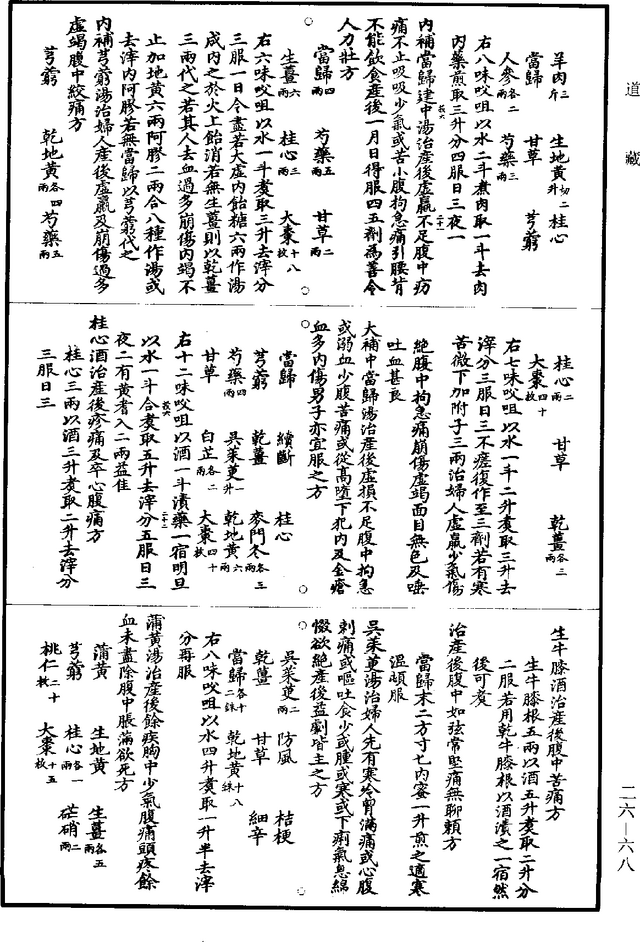 道藏
羊肉三斤 生地黃切二升 桂心
當歸 甘草 芎藭
人參各二兩 芍藥三兩
右八味㕮咀以水二斗煮肉取一斗去肉
內藥煎取三升分四服日三夜一
內補當歸建中湯治產後虛羸不足腹中㽲
痛不止吸吸少氣或苦小腹拘急痛引腰背
不能飲食產後一月日得服四五劑為善令
人力壯方
當歸四兩 芍藥五兩 甘草二兩
生薑六兩 桂心三兩 大棗十八枚
右六味㕮咀以水一斗煮取三升去滓分
三服一日令盡若大虛內飴糖六兩作湯
成內之於火上飴消若無生薑則以乾薑
三兩代之若其人去血過多崩傷內竭不
止加地黃六兩阿膠二兩合八種作湯或
去滓內阿膠若無當歸以芎藭代之
內補芎藭湯治婦人產後虛羸及崩傷過多
虛竭腹中絞痛方
芎藭 乾地黃各四兩 芍藥五兩
桂心二兩 甘草 乾薑各三兩
大棗四十枚
右七味㕮咀以水一斗二升煮取三升去
滓分三服日三不瘥復作至三劑若有寒
苦微下加附子三兩治婦人虛羸少氣傷
絕腹中拘急痛崩傷虛竭面目無色及唾
吐血甚良
大補中當歸湯治產後虛損不足腹中拘急
或溺血少腹苦痛或從高墮下犯內及金瘡
血多內傷男子亦宜服之方
當歸 續斷 桂心
芎藭 乾薑 麥門冬各三兩
芍藥四兩 吳茱萸一升 乾地黃六兩
甘草 白芷各二兩 大棗四十枚
右十二味㕮咀以酒一斗漬藥一宿明旦
以水一斗合煮取五升去滓分五服日三
夜二有黃耆入二兩益佳
桂心酒治產後疹痛及卒心腹痛方
桂心三兩以酒三升煮取二升去滓分
三服日三
生牛膝酒治產後腹中苦痛方
生牛膝根五兩以酒五升煮取二升分
二服若用乾牛膝根以酒漬之一宿然
後可煮
治產後腹中如弦常堅痛無聊賴方
當歸末二方寸匕內蜜一升煎之適寒
溫頓服
吳茱萸湯治婦人先有寒冷胷滿痛或心腹
刺痛或嘔吐食少或腫或寒或下痢氣息綿
惙欲絕產後益劇皆主之方
吳茱萸二兩 防風 桔梗
乾薑 甘草 細辛
當歸各十二銖 乾地黃十八銖
右八味㕮咀以水四升煮取一升半去滓
分再服
蒲黃湯治產後餘疾胸中少氣腹痛頭疼餘
血未盡除腹中脹滿欲死方
蒲黃 生地黃 生薑各五兩
芎藭 桂心各一兩 芒硝二兩
桃仁二十枚 大棗十五枚
二六—六八